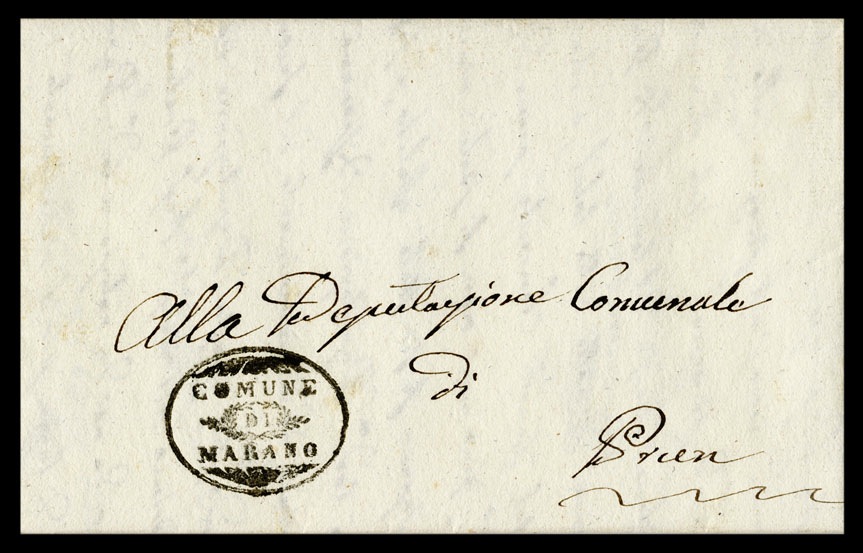 Alla Deputazione Comunale
di
COMUNE
DI
MARANO